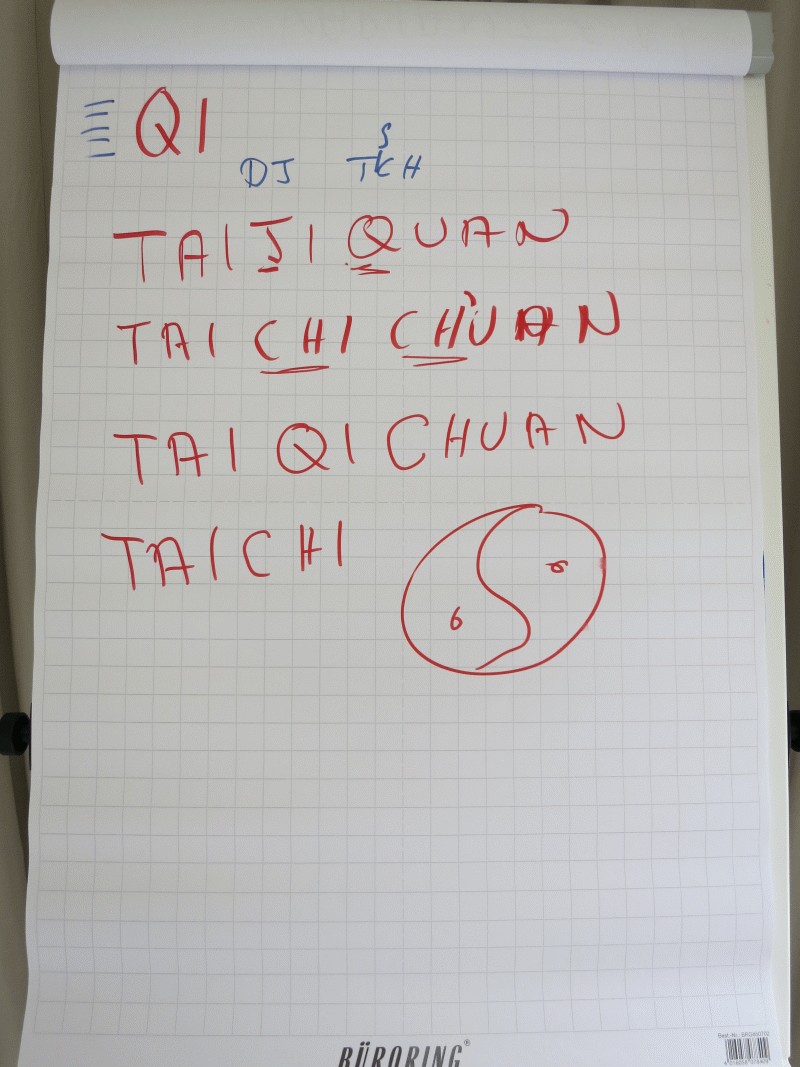 QI
DJ TSCH
TAI JI QUAN
TAI CHI CH'UAN
TAI QI CHUAN
TAI CHI
BÜRORING®